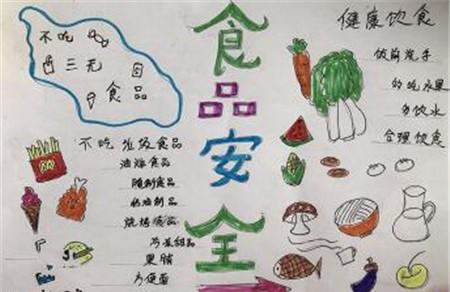 不吃
三无
食品
食
品
安
全
健康饮食
饭前洗手
吃水果
多饮水
合理饮食
不吃垃圾食品
油炸食品
制食品
奶油制品
烧烤食品
甜品
果脯
方便面